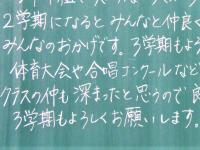 ２学期になると みんなと仲良く
みんなのおかげです。３学期もよ
体育大会や合唱コンクールなど
クラスの仲も深まったと思うので
３学期もよろしくお願いします。